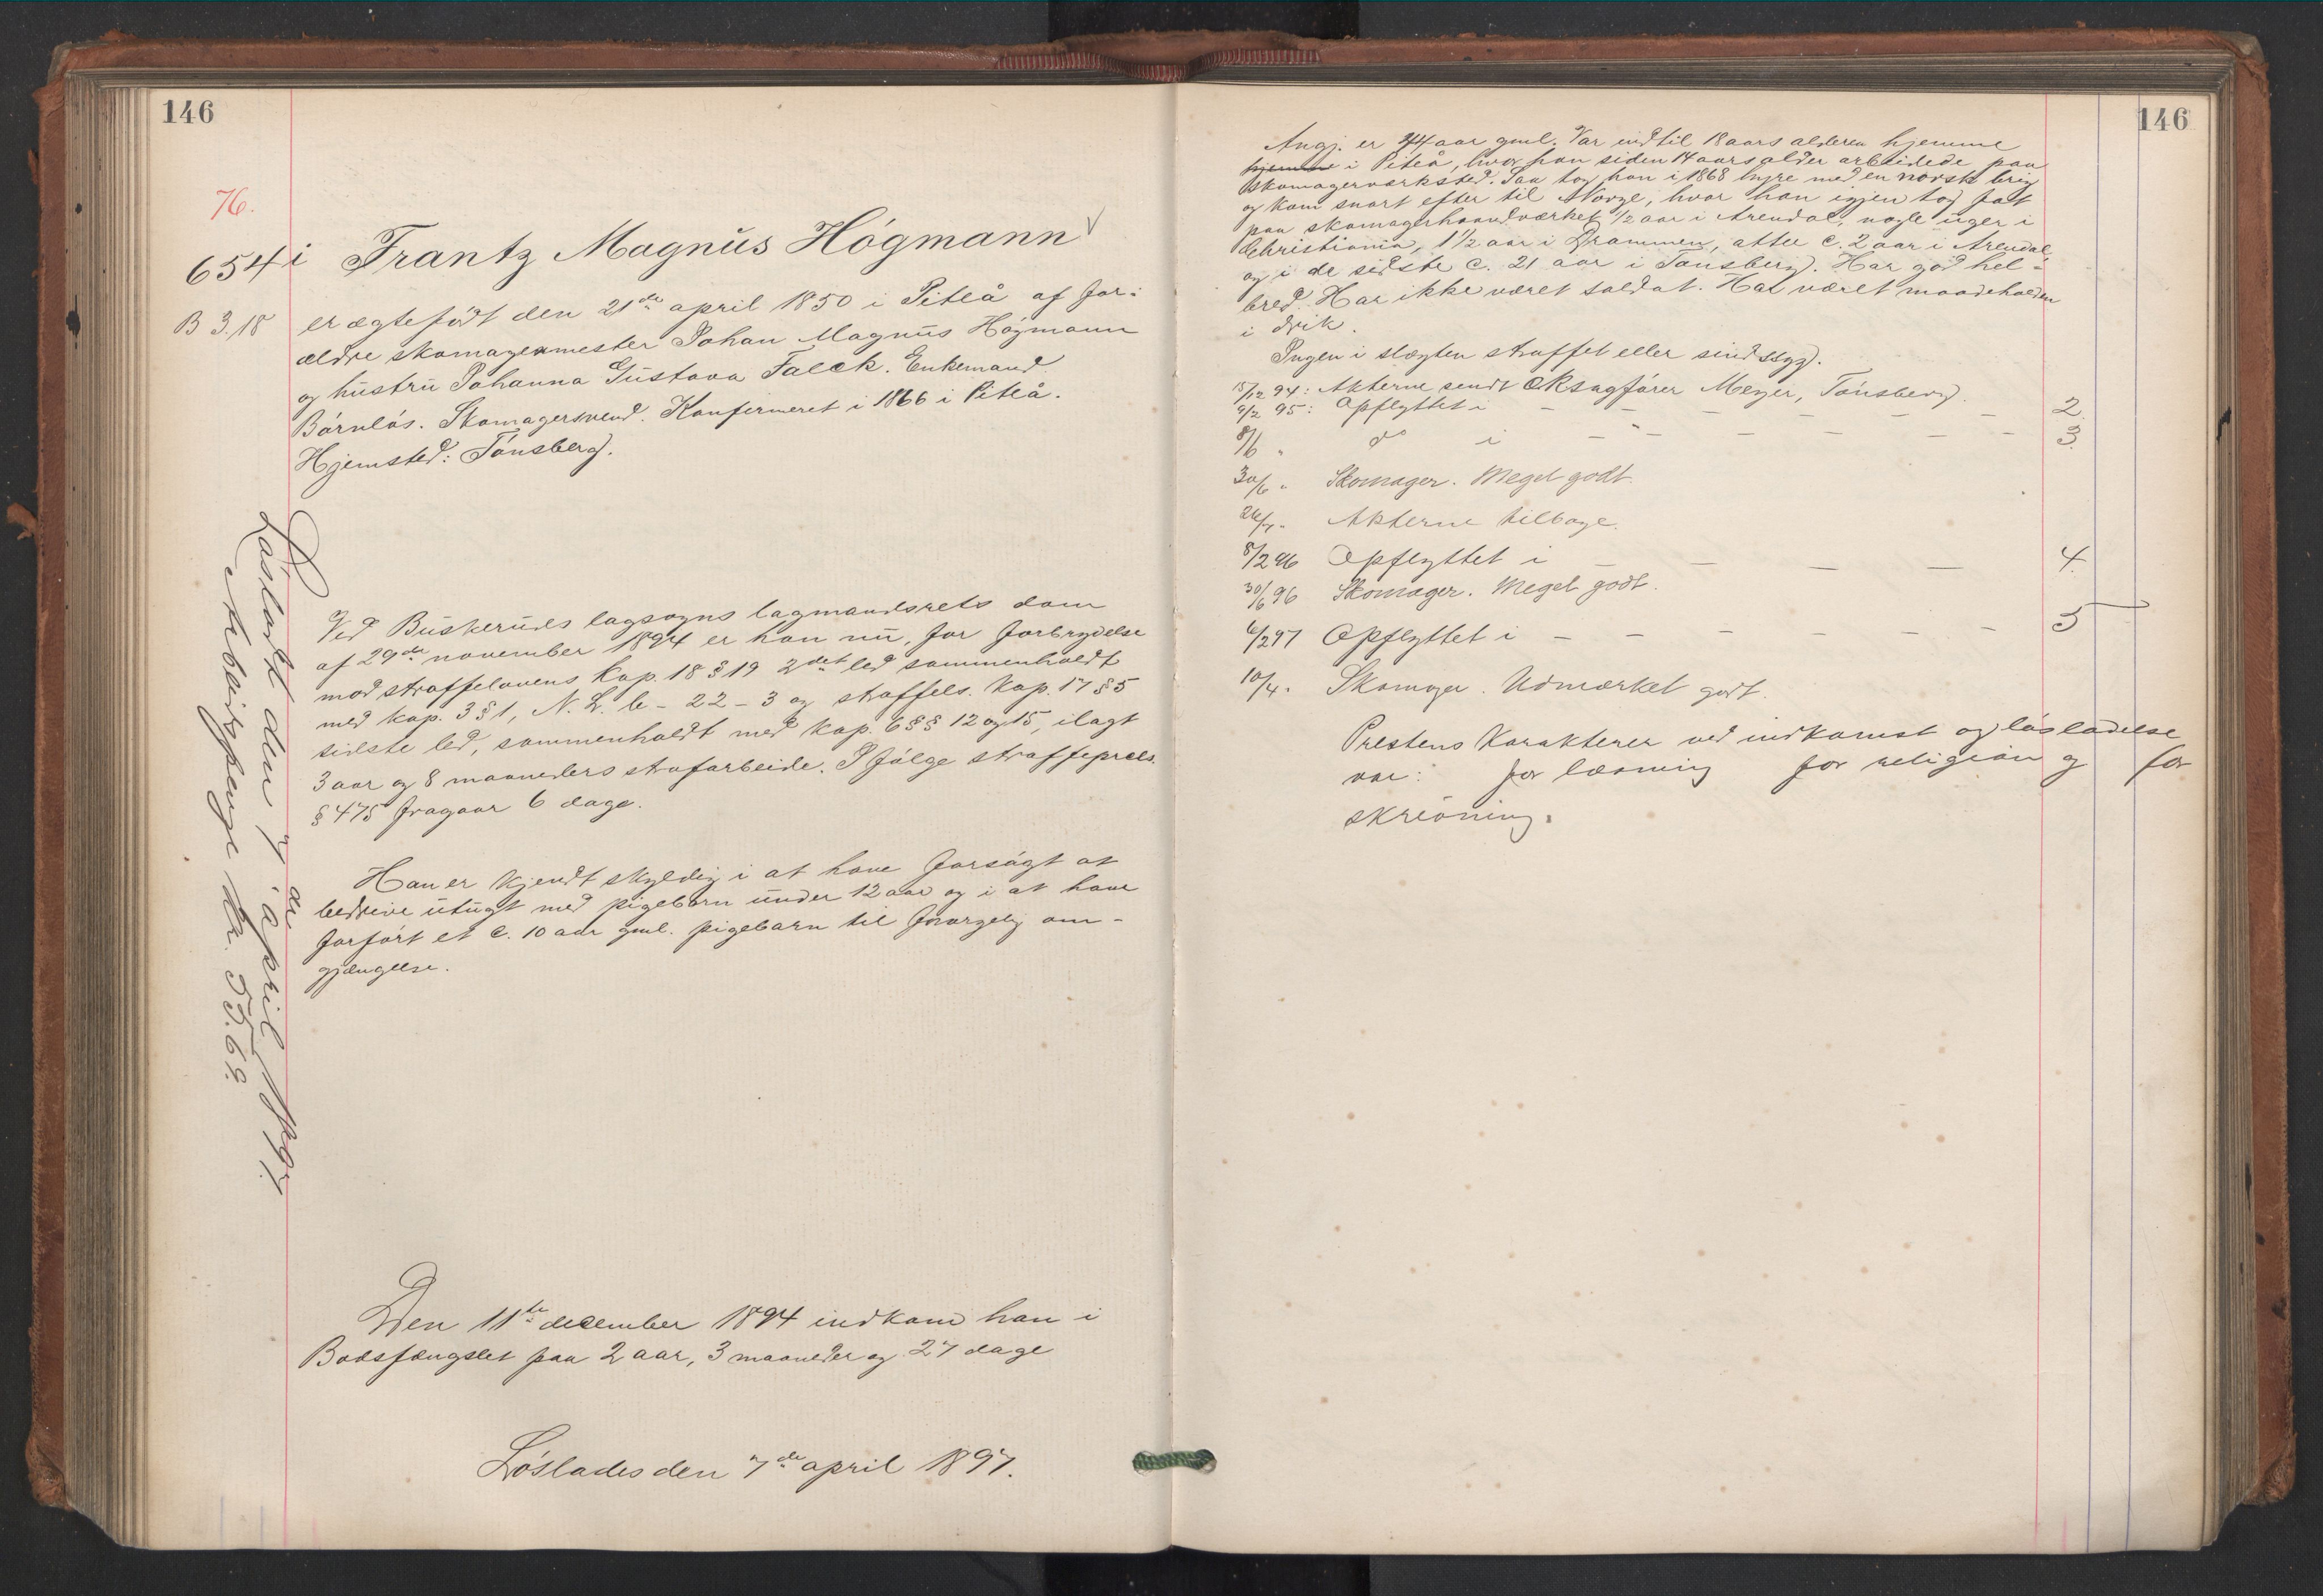 146
76.
654 i Frantz Magnus Högmann
B 3.18
er ægtefødt den 21de april 1850 i Piteå af for:
ældre skomagermester Johan Magnus Högmann
og hustru Johanna Gustava Falck. Enkemand.
Børnløs. Skomagersvend. Konfirmeret i 1866 i Piteå.
Hjemsted: Tønsberg.
Løsladt den 7de april 1897.
Arbeidspenge kr. 55.69.
Ved Buskeruds lagsogns lagmandsrets dom
af 29de november 1894 er han nu, for forbrydelse
mod straffelovens kap. 18 § 19 2det led sammenholdt
med kap. 3 § 1, N. L. 6 - 22 - 3 og straffels. kap. 17 § 5
sidste led, sammenholdt med kap. 6 §§ 12 og 15, ilagt
3 aar og 8 maaneders strafarbeide. I følge straffeprcls.
§ 475 fragaar 6 dage.
Han er kjendt skyldig i at have forsøgt at
bedrive utugt med pigebarn under 12 aar og i at have
forført et c. 10 aar gml. pigebarn til foragelig om-
gjængelse.
Den 11te december 1894 indkom han i
Bodsfængslet paa 2 aar, 3 maaneder og 27 dage
Løslades den 7de april 1897.
146
Angj. er 44 aar gml. Var indtil 18 aars alderen hjemme
hjemme i Piteå, hvor han siden 14 aars alder arbeidede paa
skomagerværksted. Saa tog han i 1868 hyre med en norsk brig
og kom snart efter til Norge, hvor han igjen tog fat
paa skomagerhaandværket, 1/2 aar i Arendal, nogle uger i
Christiania, 1 1/2 aar i Drammen, atter c. 2 aar i Arendal
og i de sidste c. 21 aar i Tønsberg. Har god hel-
bred. Har ikke været soldat. Har været maadeholden
i drik.
Ingen i slægten straffet eller sindssyg.
15/12 94: Akterne sendt Oksagfører Meyer, Tønsberg.
9/2 95: Opflyttet i - - - - - - 2.
8/6 " do i - - - - - - 3.
30/6 " Skomager. Meget godt.
26/7 " Akterne tilbage.
8/2 96 Opflyttet i - - - - 4.
30/6 96 Skomager. Meget godt.
6/2 97 Opflyttet i - - - - - - 5
10/4 " Skomager. Udmærket godt.
Prestens karakterer ved indkomst og løsladelse
var: for læsning for religion og for
skrivning.